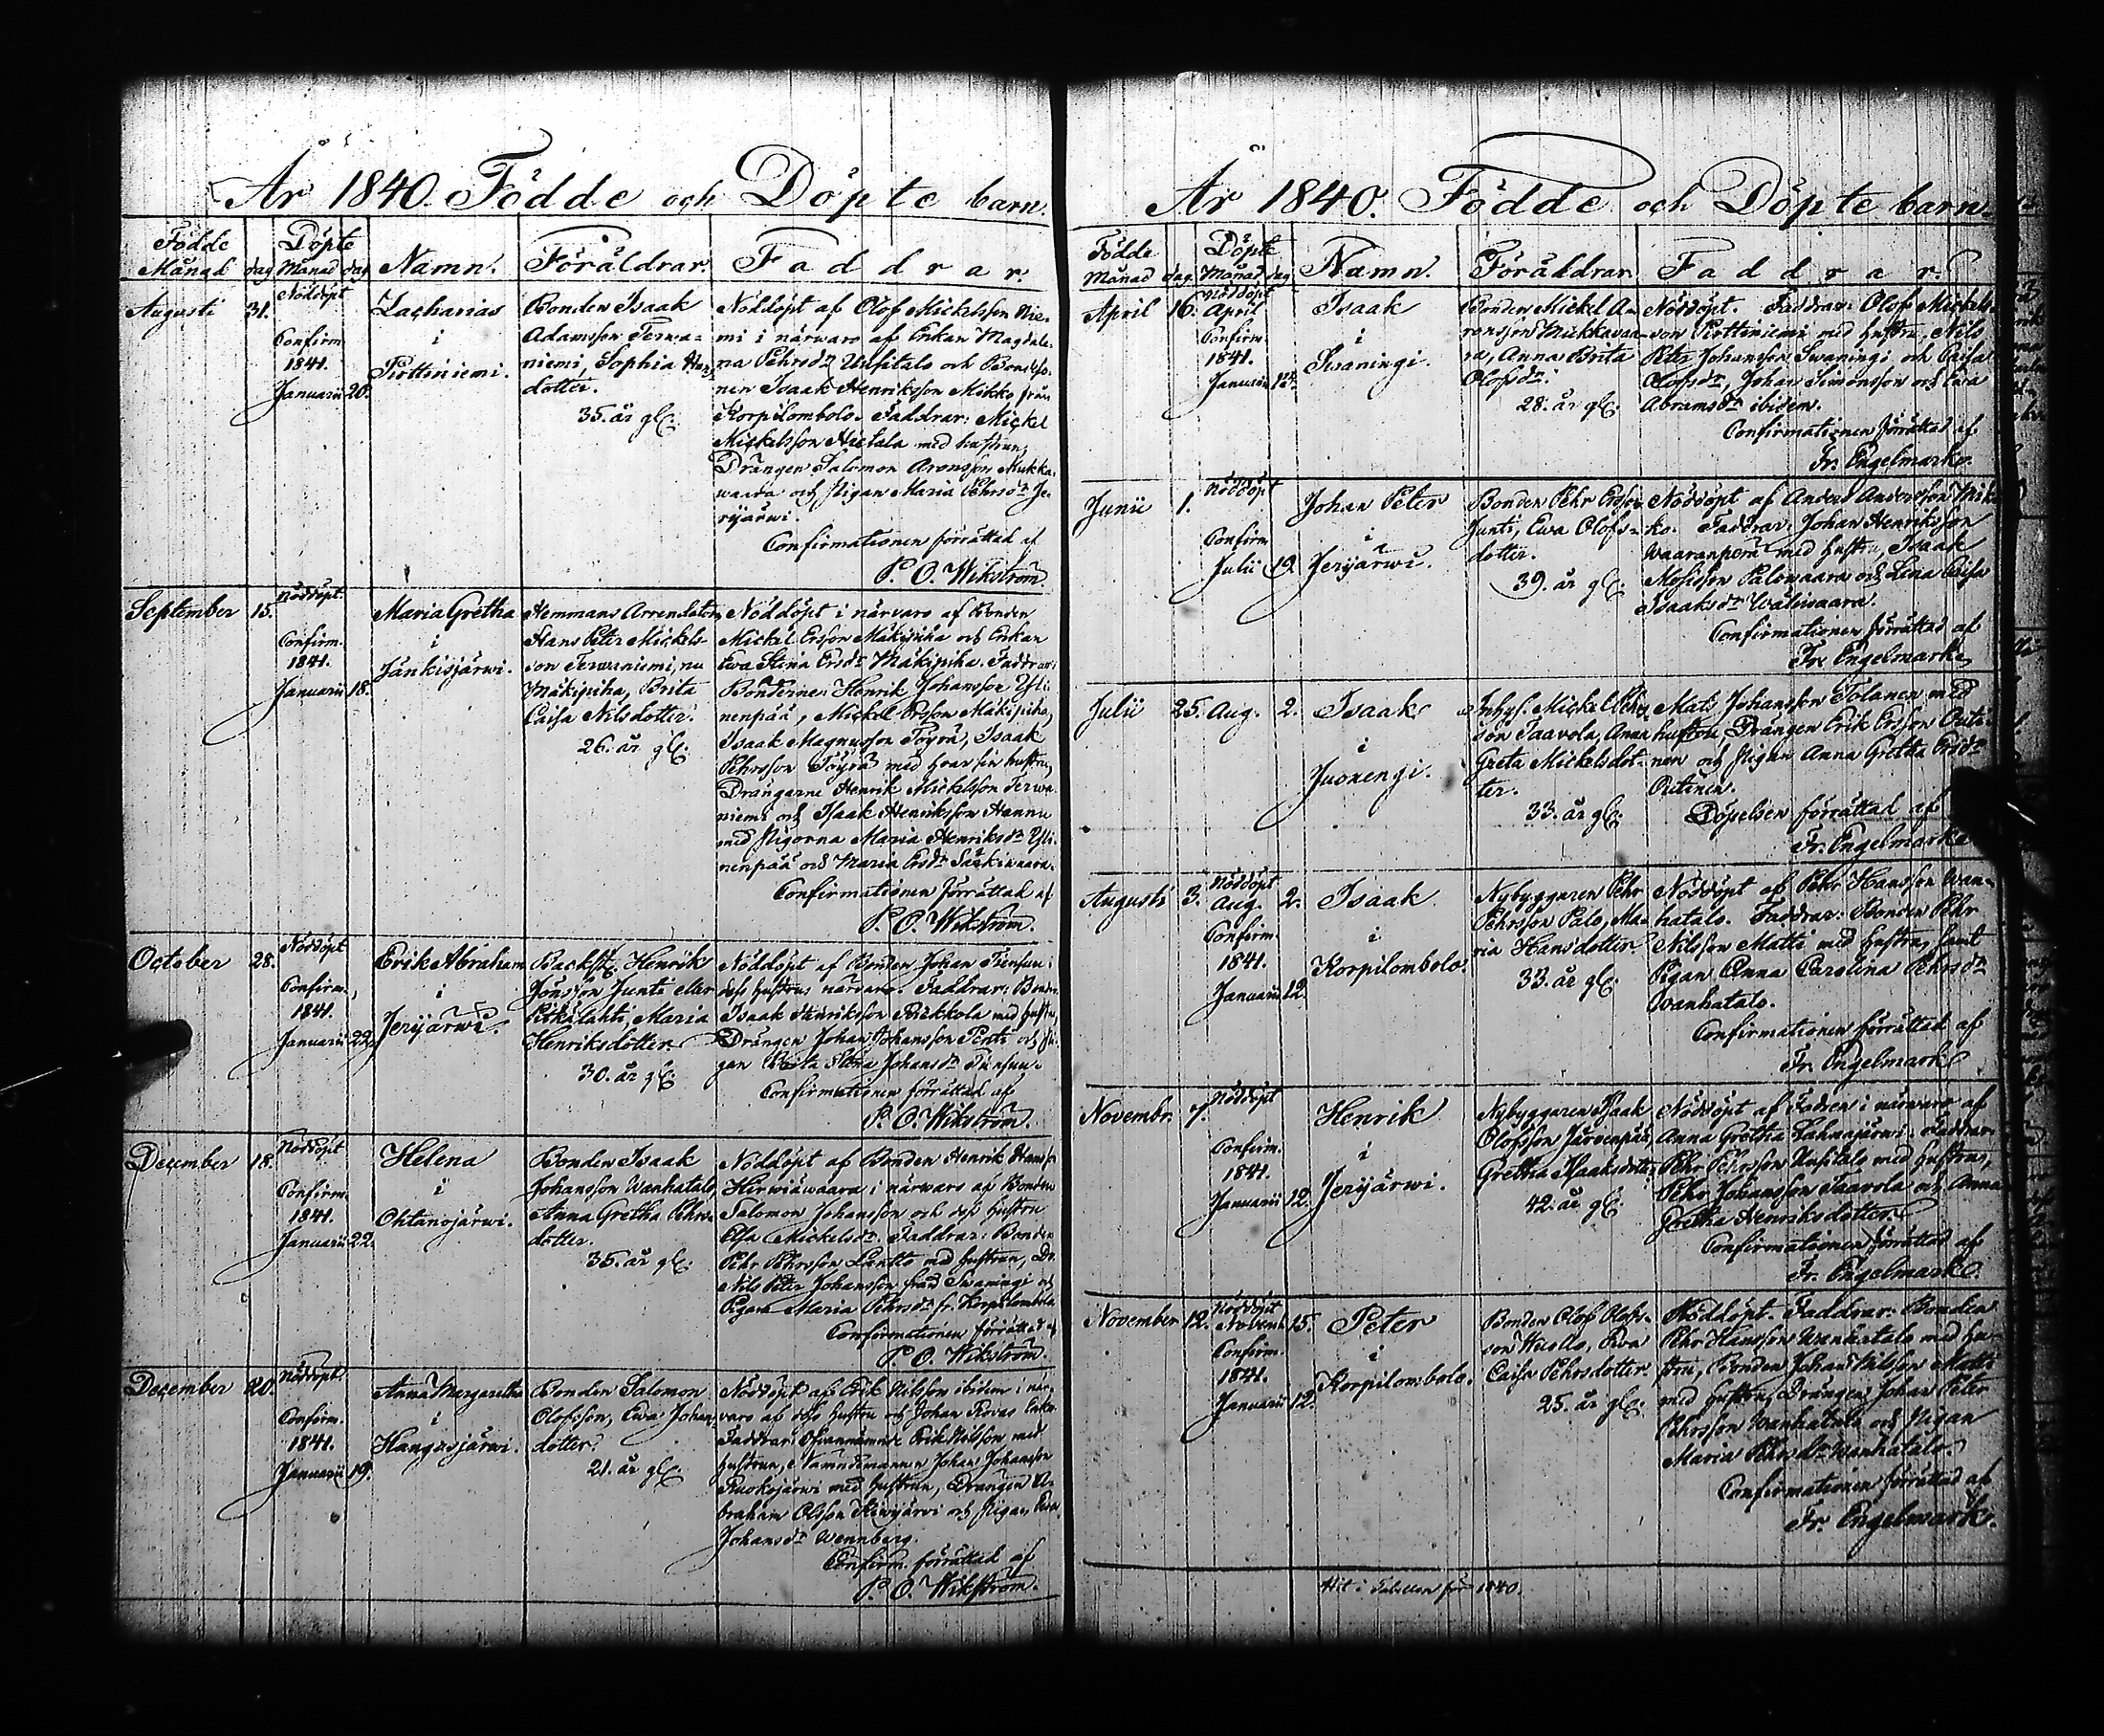 År 1840. Födde och Döpte barn.
Födde Månad dag Döpte Månad dag Namn. Föräldrar. Faddrar.
Augusti 31. Nöddöpt
Confirm
1841.
Januarii 20.
Zacharias
i
Piottiniemi.
Bonden Isaak
Adamsson Terwa-
niemi, Sophia Hans
dotter.
35. år gl.
Nöddöpt af Olof Mickelsson Nie-
mi i närwaro af Enkan Magdale-
na Pehrsdr Uusitalo och Bondeso-
nen Isaak Henriksson Mikko från
Korpilombolo. Faddrar: Mickel
Mickelsson Hietala med hustrun,
Drängen Salomon Aronsson Mukka-
waara och Pigan Maria Pehrsdr Je-
rijärwi.
Confirmationen förrättad af
P. O. Wikström.
September 15. Nöddöpt.
Confirm.
1841.
Januarii 18.
Maria Gretha
i
Jänkisjärwi.
Hemmans Arrendatorn
Hans Peter Mickels-
son Terwaniemi, nu
Mäkipiha, Brita
Caisa Nilsdotter.
26. år gl.
Nöddöpt i närwaro af Bonden
Mickel Ersson Mäkipiha och Enkan
Ewa Stina Ersdr Mäkipiha. Faddrar:
Bönderne Henrik Johansson Yli-
nenpää, Mickel Ersson Mäkipiha,
Isaak Magnusson Töyrä, Isaak
Pehrsson Töyrä med hwar sin hustru,
Drängarne Henrik Mickelsson Terwa-
niemi och Isaak Henriksson Hannu
med Pigorna Maria Henriksdr Yli-
nenpää och Maria Ersdr Säskiwaara.
Confirmationen förrättad af
P. O. Wikström.
October 28. Nöddöpt
Confirm.
1841.
Januarii 22.
Erik Abraham
i
Jerijärwi.
Backst. Henrik
Jönsson Junti eller
Pitkälahti, Maria
Henriksdotter.
30. år gl.
Nöddöpt af Bonden Johan Tiensuu i
dess hustrus närwaro. Faddrar: Bonden
Isaak Henriksson Rikkola med hustru,
Drängen Johan Johansson Pentti och Pi-
gan Brita Stina Johansdr Tiensuu.
Confirmationen förrättad af
P. O. Wikström.
December 18. Nöddöpt
Confirm.
1841.
Januarii 22.
Helena
i
Ohtanojärwi.
Bonden Isaak
Johansson Wanhatalo
Anna Gretha Pehrs-
dotter.
35. år gl.
Nöddöpt af Bonden Henrik Hanss.
Hirwiäwaara i närwaro af Bonden
Salomon Johansson och dess hustru
Elsa Mickelsdr. Faddrar: Bonden
Pehr Pehrsson Lantto med hustrun, Dr.
Nils Peter Johansson från Swaningi och
Pigan Maria Pehrsdr fr. Korpilombolo
Confirmationen förrättad af
P. O. Wikström.
December 20. Nöddöpt
Confirm.
1841.
Januarii 19.
Anna Margaretha
i
Kangasjärwi.
Bonden Salomon
Olofsson, Ewa Johans
dotter.
21. år gl.
Nöddöpt af Erik Nilsson ibidem i när-
waro af dess hustru och Johan
Faddrar: Ofwannämnde Erik Nilsson med
hustrun, Nämndemannen Johan Johansson
Ruokojärwi med hustrun, Drängen A-
braham Olsson Kiwijärwi och Pigan Ewa
Johansdr Wennberg.
Confirm. förrättad af
P. O. Wikström.
År 1840. Födde och Döpte barn.
Födde Månad dag Döpte Månad dag Namn. Föräldrar Faddrar.
April 16. Nöddöpt
April
Confirm.
1841.
Januarii 12.
Isaak
i
Swaningi.
Bonden Mickel A-
ronsson Mukkawaa-
ra, Anna Brita
Olofsdr.
28. år gl.
Nöddöpt. Faddrar: Olof Mickels-
son Piottiniemi med hustru, Nils
Peter Johansson Swaningi och Caisa
Olofsdr, Johan Simonsson och Ewa
Abramsdr ibidem.
Confirmationen förrättad af
Fr. Engelmark.
Junii 1. Nöddöpt
Confirm
Julii 19.
Johan Peter
i
Jerijärwi.
Bonden Pehr Ersson
Junti, Ewa Olofs-
dotter.
39. år gl.
Nöddöpt af Anders Andersson Mik-
ko. Faddrar: Johan Henriksson
Waaranperä med hustru, Isaak
Mosisson Palowaara och Lena Caisa
Isaaksdr Wäliwaara.
Confirmationen förrättad af
Fr. Engelmark.
Julii 25. Aug. 2. Isaak
i
Juonengi.
Inhys. Mickel Pehrs-
son Taavola, Anna
Greta Mickelsdot-
ter.
33. år gl.
Mats Johansson Tolanen med
hustru, Drängen Erik Ersson Outi-
nen och Pigan Anna Gretha Ersdr
Outinen.
Döpelsen förrättad af
Fr. Engelmark
Augusti 3. Nöddöpt
Aug. 2.
Confirm.
1841.
Januarii 12.
Isaak
i
Korpilombolo.
Nybyggaren Pehr
Pehrsson Palo, Ma-
ria Hansdotter
33. år gl.
Nöddöpt af Pehr Hansson Wan-
hatalo. Faddrar: Bonden Pehr
Nilsson Matti med hustru, samt
Pigan Anna Carolina Pehrsdr
Wanhatalo.
Confirmationen förrättad af
Fr. Engelmark
Novembr. 7. Nöddöpt
Confirm.
1841.
Januarii 12.
Henrik
i
Jerijärwi.
Nybyggaren Isaak
Olofsson Järwenpää,
Gretha Isaaksdotter
42. år gl.
Nöddöpt af Fadren i närwaro af
Anna Gretha Lahnajärwi. Faddrar:
Pehr Pehrsson Uusitalo med hustru,
Pehr Johansson Taavola och Anna
Gretha Henriksdotter.
Confirmationen förrättad af
Fr. Engelmark.
November 12. Nöddöpt
Novemb. 15.
Confirm.
1841.
Januarii 12.
Peter
i
Korpilombolo.
Bonden Olof Olofs-
son Wuollo, Ewa
Caisa Pehrsdotter.
25. år gl.
Nöddöpt. Faddrar: Bonden
Pehr Hansson Wanhatalo med hu-
stru, Bonden Johan Nilsson Matti
med hustru, Drängen Johan Peter
Pehrsson Wanhatalo och Pigan
Maria Pehrsdr Wanhatalo.
Confirmationen förrättad af
Fr. Engelmark.
Hit i Tabellen för 1840.